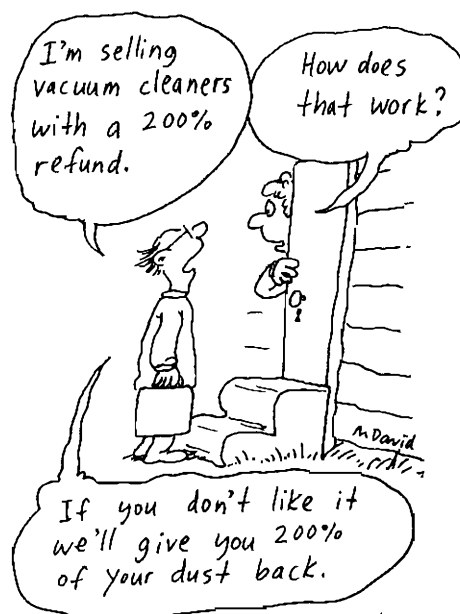 I'm selling
vacuum cleaners
with a 200%
refund.
How does
that work?
If you don't like it
we'll give you 200%
of your dust back.
M David